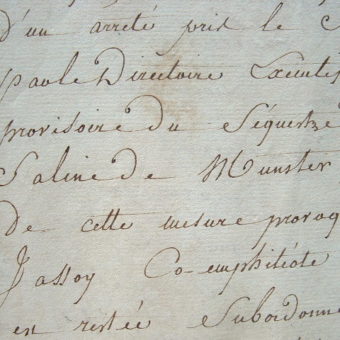 d'un arreté pris le
par le Directoire Executif
provisoire du Séquestre
Saline de Munster
de cette mesure provoq
Jassoy Co-emphitéote
en restée Subordonne